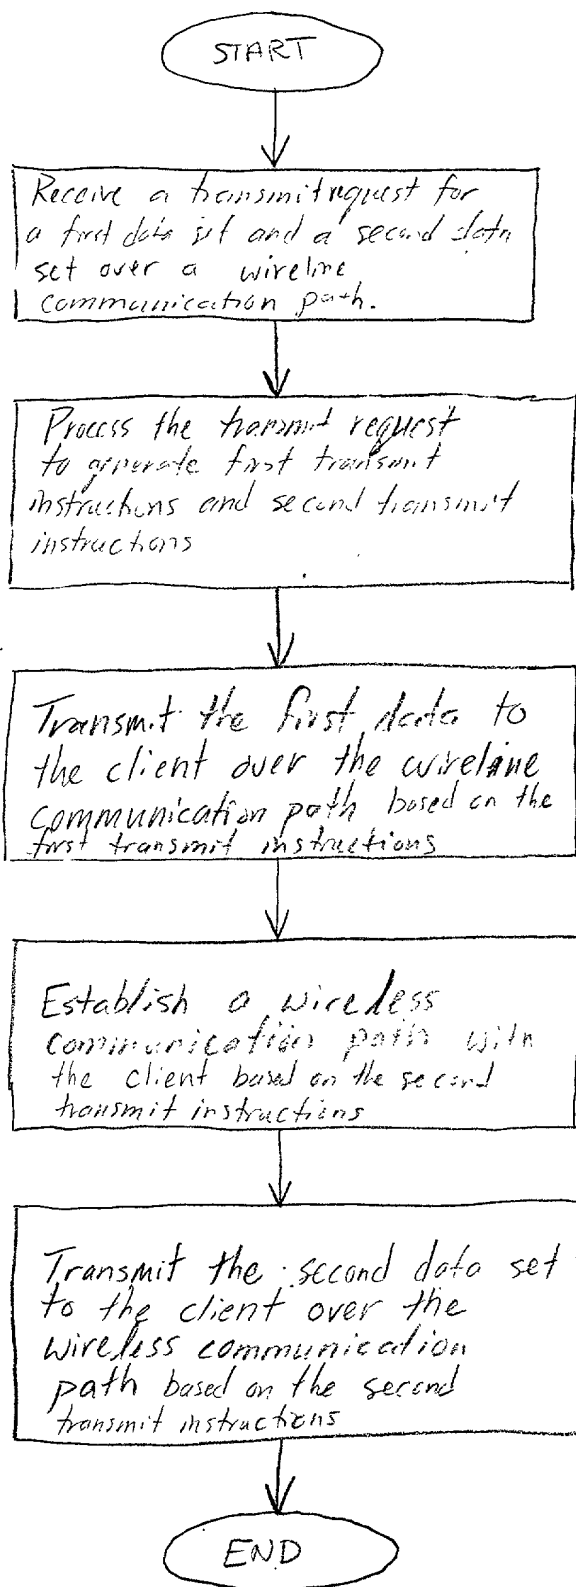 START
Receive a transmit request for
a first data set and a second data
set over a wireline
communication path.
Process the transmit request
to generate first transmit
instructions and second transmit
instructions
Transmit the first data to
the client over the wireline
communication path based on the
first transmit instructions
Establish a wireless
communication path with
the client based on the second
transmit instructions
Transmit the second data set
to the client over the
wireless communication
path based on the second
transmit instructions
END